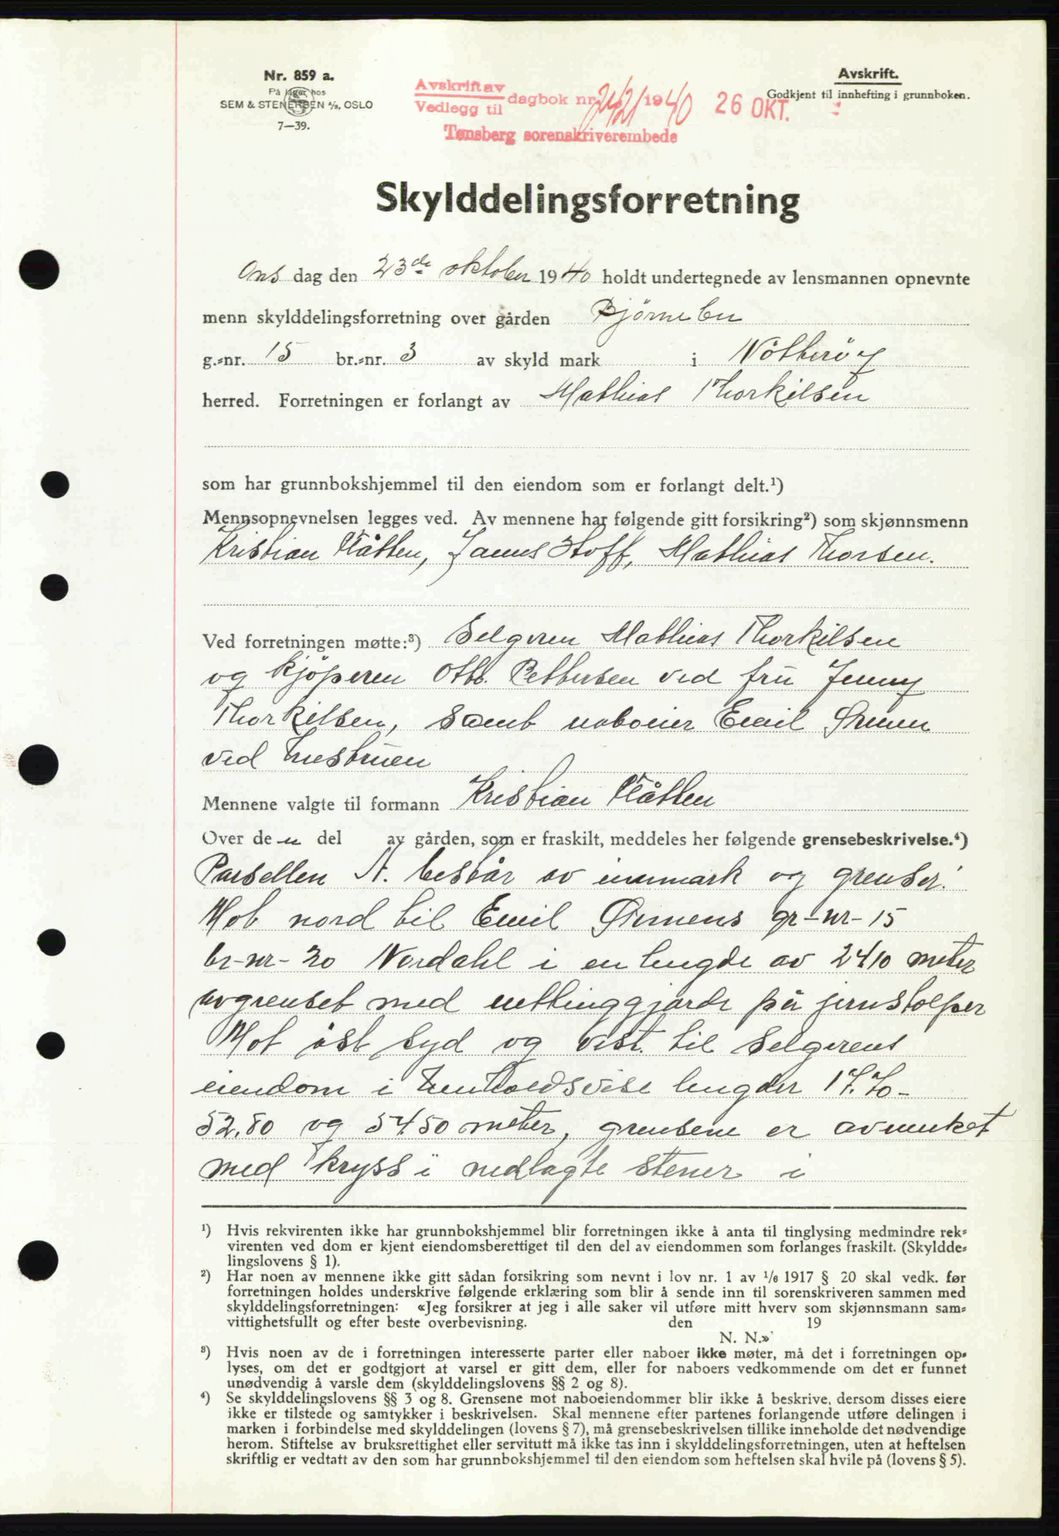 Nr. 859 a.
På lager hos
SEM & STENERSEN A/S, OSLO
7—39.
Avskrift av
Vedlegg til
dagbok nr. 2421 1940 26 OKT.
Tønsberg sorenskriverembede
Avskrift.
Godkjent til innhefting i grunnboken.
Skylddelingsforretning
Ons dag den 23de oktober 1940 holdt undertegnede av lensmannen opnevnte
menn skylddelingsforretning over gården Bjørnebu
g.-nr. 15 br.-nr. 3 av skyld mark i Nøtterøy
herred. Forretningen er forlangt av Mathias Thorkilsen
som har grunnbokshjemmel til den eiendom som er forlangt delt.¹)
Mennsopnevnelsen legges ved. Av mennene har følgende gitt forsikring²) som skjønnsmenn
Kristian Flåtten, James Hoff, Mathias Thorsen.
Ved forretningen møtte:³) Selgeren Mathias Thorkilsen
og kjøperen Otto Pettersen ved fru Jenny
Thorkilsen, samt naboeier Emil
ved hustruen
Mennene valgte til formann Kristian Flåtten
Over den del av gården, som er fraskilt, meddeles her følgende grensebeskrivelse.⁴)
Parsellen A. består av innmark og grenser:
Mot nord til Emil gr-nr-15
br-nr-30 Nordahl i en lengde av 24,10 meter
avgrenset med nettinggjærde på jernstolper
Mot øst syd og vest til selgerens
eiendom i henholdsvise lengder 17.70-
52.80 og 54.50 meter, grensene er avmerket
med kryss i nedlagte stener i
¹) Hvis rekvirenten ikke har grunnbokshjemmel blir forretningen ikke å anta til tinglysing medmindre rek-
virenten ved dom er kjent eiendomsberettiget til den del av eiendommen som forlanges fraskilt. (Skyldde-
lingslovens § 1).
²) Har noen av mennene ikke gitt sådan forsikring som nevnt i lov nr. 1 av 1/6 1917 § 20 skal vedk. før
forretningen holdes underskrive følgende erklæring som blir å sende inn til sorenskriveren sammen med
skylddelingsforretningen: «Jeg forsikrer at jeg i alle saker vil utføre mitt hverv som skjønnsmann sam-
vittighetsfullt og efter beste overbevisning. den 19
N. N.»
³) Hvis noen av de i forretningen interesserte parter eller naboer ikke møter, må det i forretningen op-
lyses, om det er godtgjort at varsel er gitt dem, eller for naboers vedkommende om det er funnet
unødvendig å varsle dem (skylddelingslovens §§ 2 og 8).
⁴) Se skylddelingslovens §§ 3 og 8. Grensene mot naboeiendommer blir ikke å beskrive, dersom disses eiere
ikke er tilstede og samtykker i beskrivelsen. Skal mennene efter partenes forlangende utføre delingen i
marken i forbindelse med skylddelingen (lovens § 7), må grensebeskrivelsen tillike inneholde det nødvendige
herom. Stiftelse av bruksrettighet eller servitutt må ikke tas inn i skylddelingsforretningen, uten at heftelsen
skriftlig er vedtatt av den som har grunnbokshjemmel til den eiendom som heftelsen skal hvile på (lovens § 5).